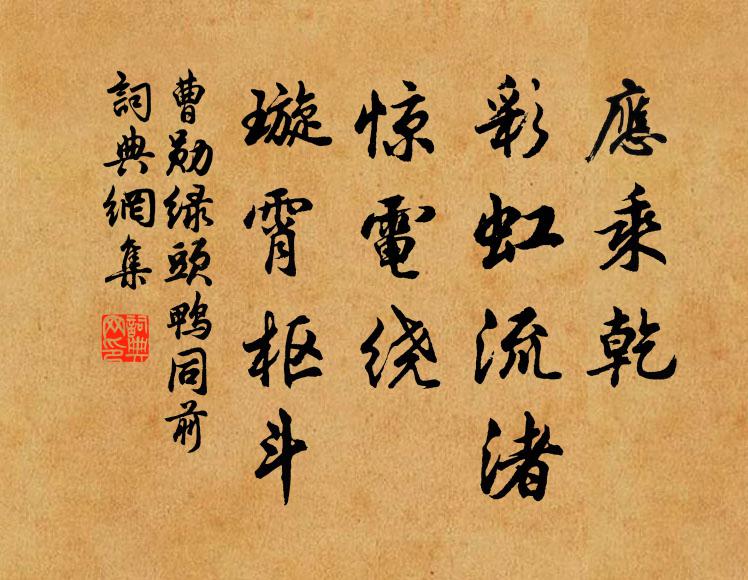 應乘乾
彩虹流渚
惊電绕
璇霄枢斗
曹勋绿頭鸭同前
詞典網集
詞典
网印